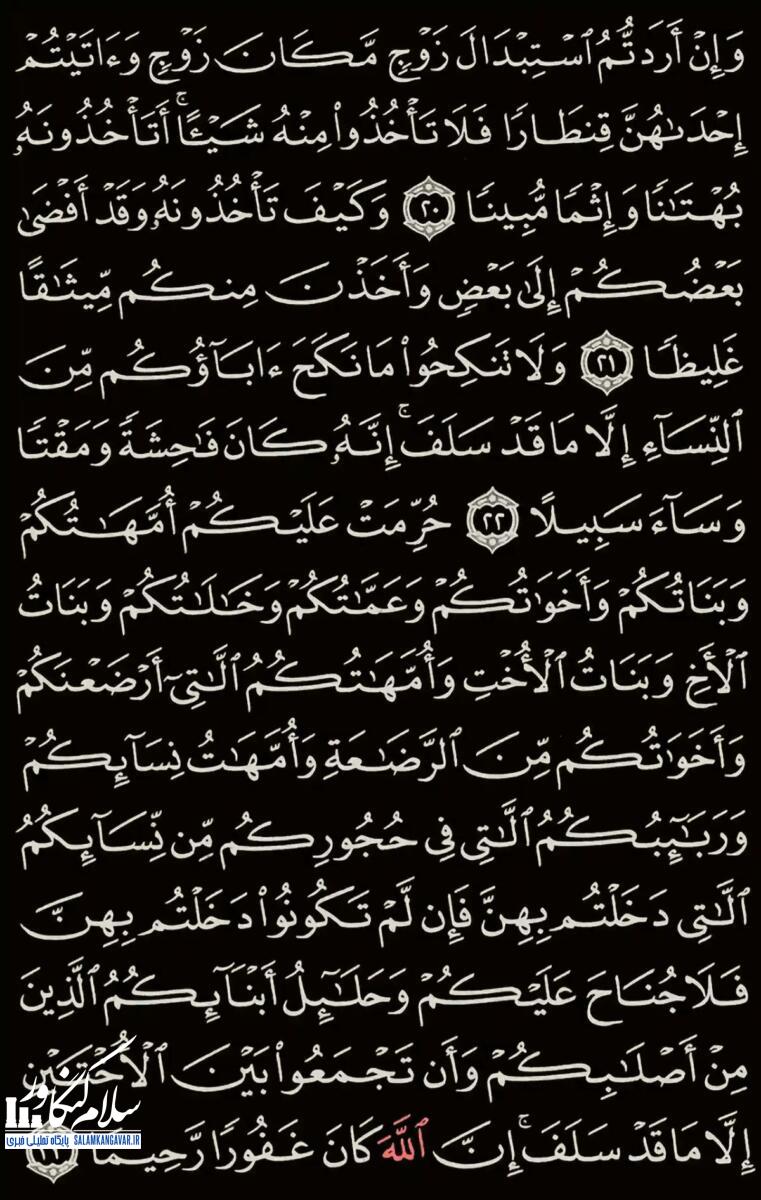 وَإِنْ أَرَدتُّمُ ٱسْتِبْدَالَ زَوْجٍ مَّكَانَ زَوْجٍ وَءَاتَيْتُمْ
إِحْدَىٰهُنَّ قِنطَارًا فَلَا تَأْخُذُوا۟ مِنْهُ شَيْـًٔا ۚ أَتَأْخُذُونَهُۥ
بُهْتَٰنًا وَإِثْمًا مُّبِينًا ٢٠ وَكَيْفَ تَأْخُذُونَهُۥ وَقَدْ أَفْضَىٰ
بَعْضُكُمْ إِلَىٰ بَعْضٍ وَأَخَذْنَ مِنكُم مِّيثَٰقًا
غَلِيظًا ٢١ وَلَا تَنكِحُوا۟ مَا نَكَحَ ءَابَآؤُكُم مِّنَ
ٱلنِّسَآءِ إِلَّا مَا قَدْ سَلَفَ ۚ إِنَّهُۥ كَانَ فَٰحِشَةً وَمَقْتًا
وَسَآءَ سَبِيلًا ٢٢ حُرِّمَتْ عَلَيْكُمْ أُمَّهَٰتُكُمْ
وَبَنَاتُكُمْ وَأَخَوَٰتُكُمْ وَعَمَّٰتُكُمْ وَخَٰلَٰتُكُمْ وَبَنَاتُ
ٱلْأَخِ وَبَنَاتُ ٱلْأُخْتِ وَأُمَّهَٰتُكُمُ ٱلَّٰتِىٓ أَرْضَعْنَكُمْ
وَأَخَوَٰتُكُم مِّنَ ٱلرَّضَٰعَةِ وَأُمَّهَٰتُ نِسَآئِكُمْ
وَرَبَٰٓئِبُكُمُ ٱلَّٰتِى فِى حُجُورِكُم مِّن نِّسَآئِكُمُ
ٱلَّٰتِى دَخَلْتُم بِهِنَّ فَإِن لَّمْ تَكُونُوا۟ دَخَلْتُم بِهِنَّ
فَلَا جُنَاحَ عَلَيْكُمْ وَحَلَٰٓئِلُ أَبْنَآئِكُمُ ٱلَّذِينَ
مِنْ أَصْلَٰبِكُمْ وَأَن تَجْمَعُوا۟ بَيْنَ ٱلْأُخْتَيْنِ
إِلَّا مَا قَدْ سَلَفَ ۗ إِنَّ ٱللَّهَ كَانَ غَفُورًا رَّحِيمًا
سلام کنگاور
پایگاه تحلیلی خبری SALAMKANGAVAR.IR